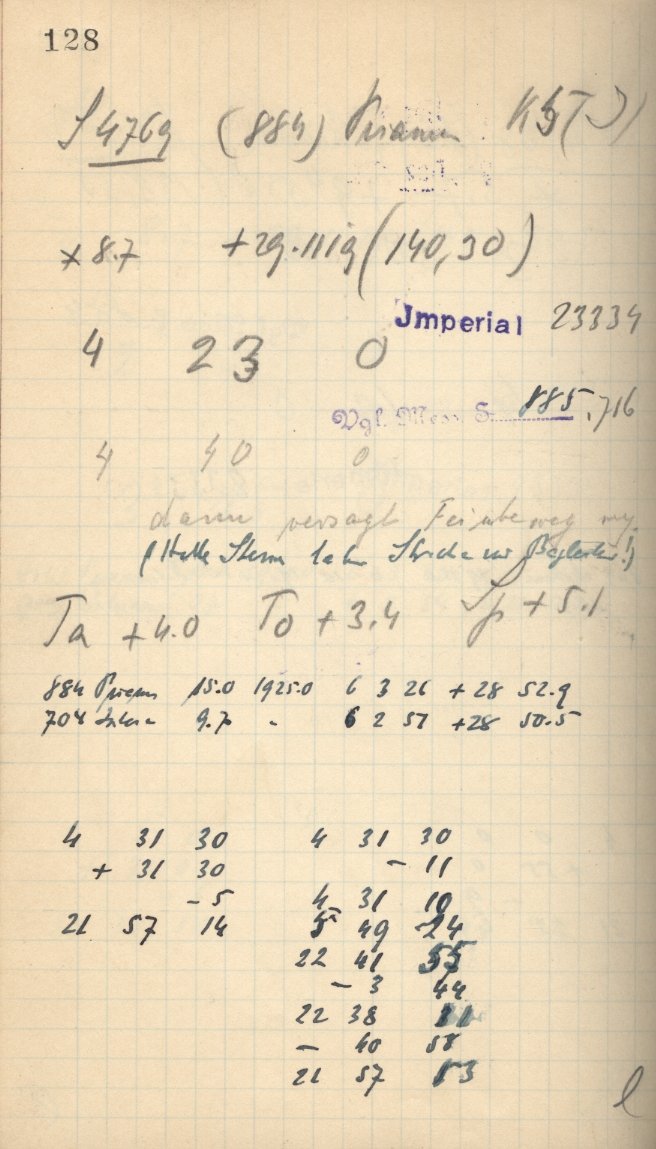 128
S 4769 (884) Priamus K
× 8.7 +29.111g (140,30)
Jmperial 23334
4 23 0
Vgl. Mess S. 885.716
4 40 0
dann versagt
(Helle Sterne Striche Begleiter!)
Ta +4.0 To +3.4 Sp +5.1
884 Priamus 15.0 1925.0 6 3 26 +28 52.9
704 9.7 " 6 2 51 +28 50.5
4 31 30 4 31 30
+ 31 30 - 11
- 5 4 31 10
21 57 14 5 49 24
22 41 55
- 3 44
22 38 11
- 40 58
21 57 13